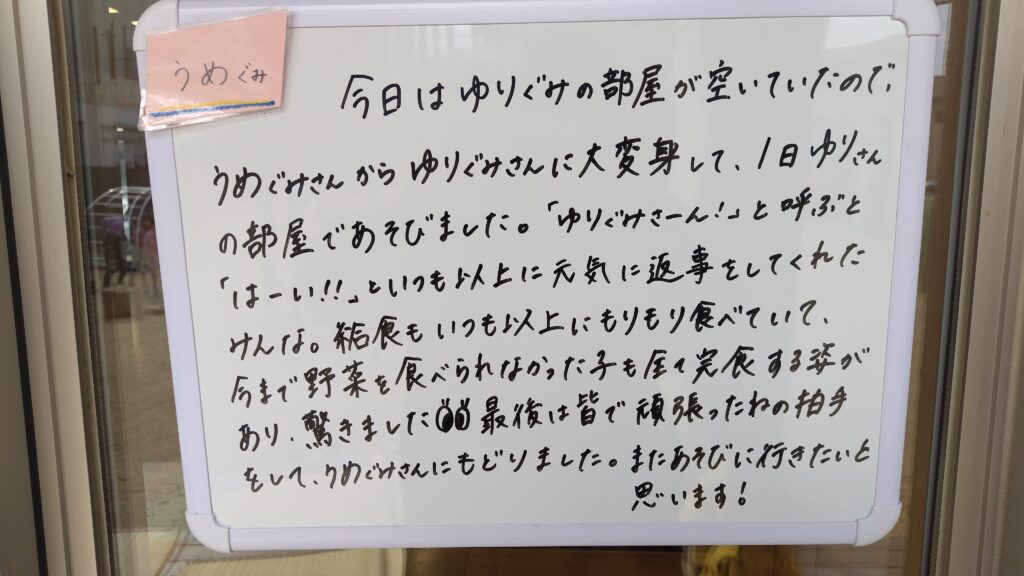 うめぐみ
今日はゆりぐみの部屋が空いていたので、
うめぐみさんからゆりぐみさんに大変身して、1日ゆりさん
の部屋であそびました。「ゆりぐみさーん!」と呼ぶと
「はーい!!」といつも以上に元気に返事をしてくれた
みんな。給食もいつも以上にもりもり食べていて、
今まで野菜を食べられなかった子も全て完食する姿が
あり、驚きました 最後は皆で頑張ったねの拍手
をして、うめぐみさんにもどりました。またあそびに行きたいと
思います!